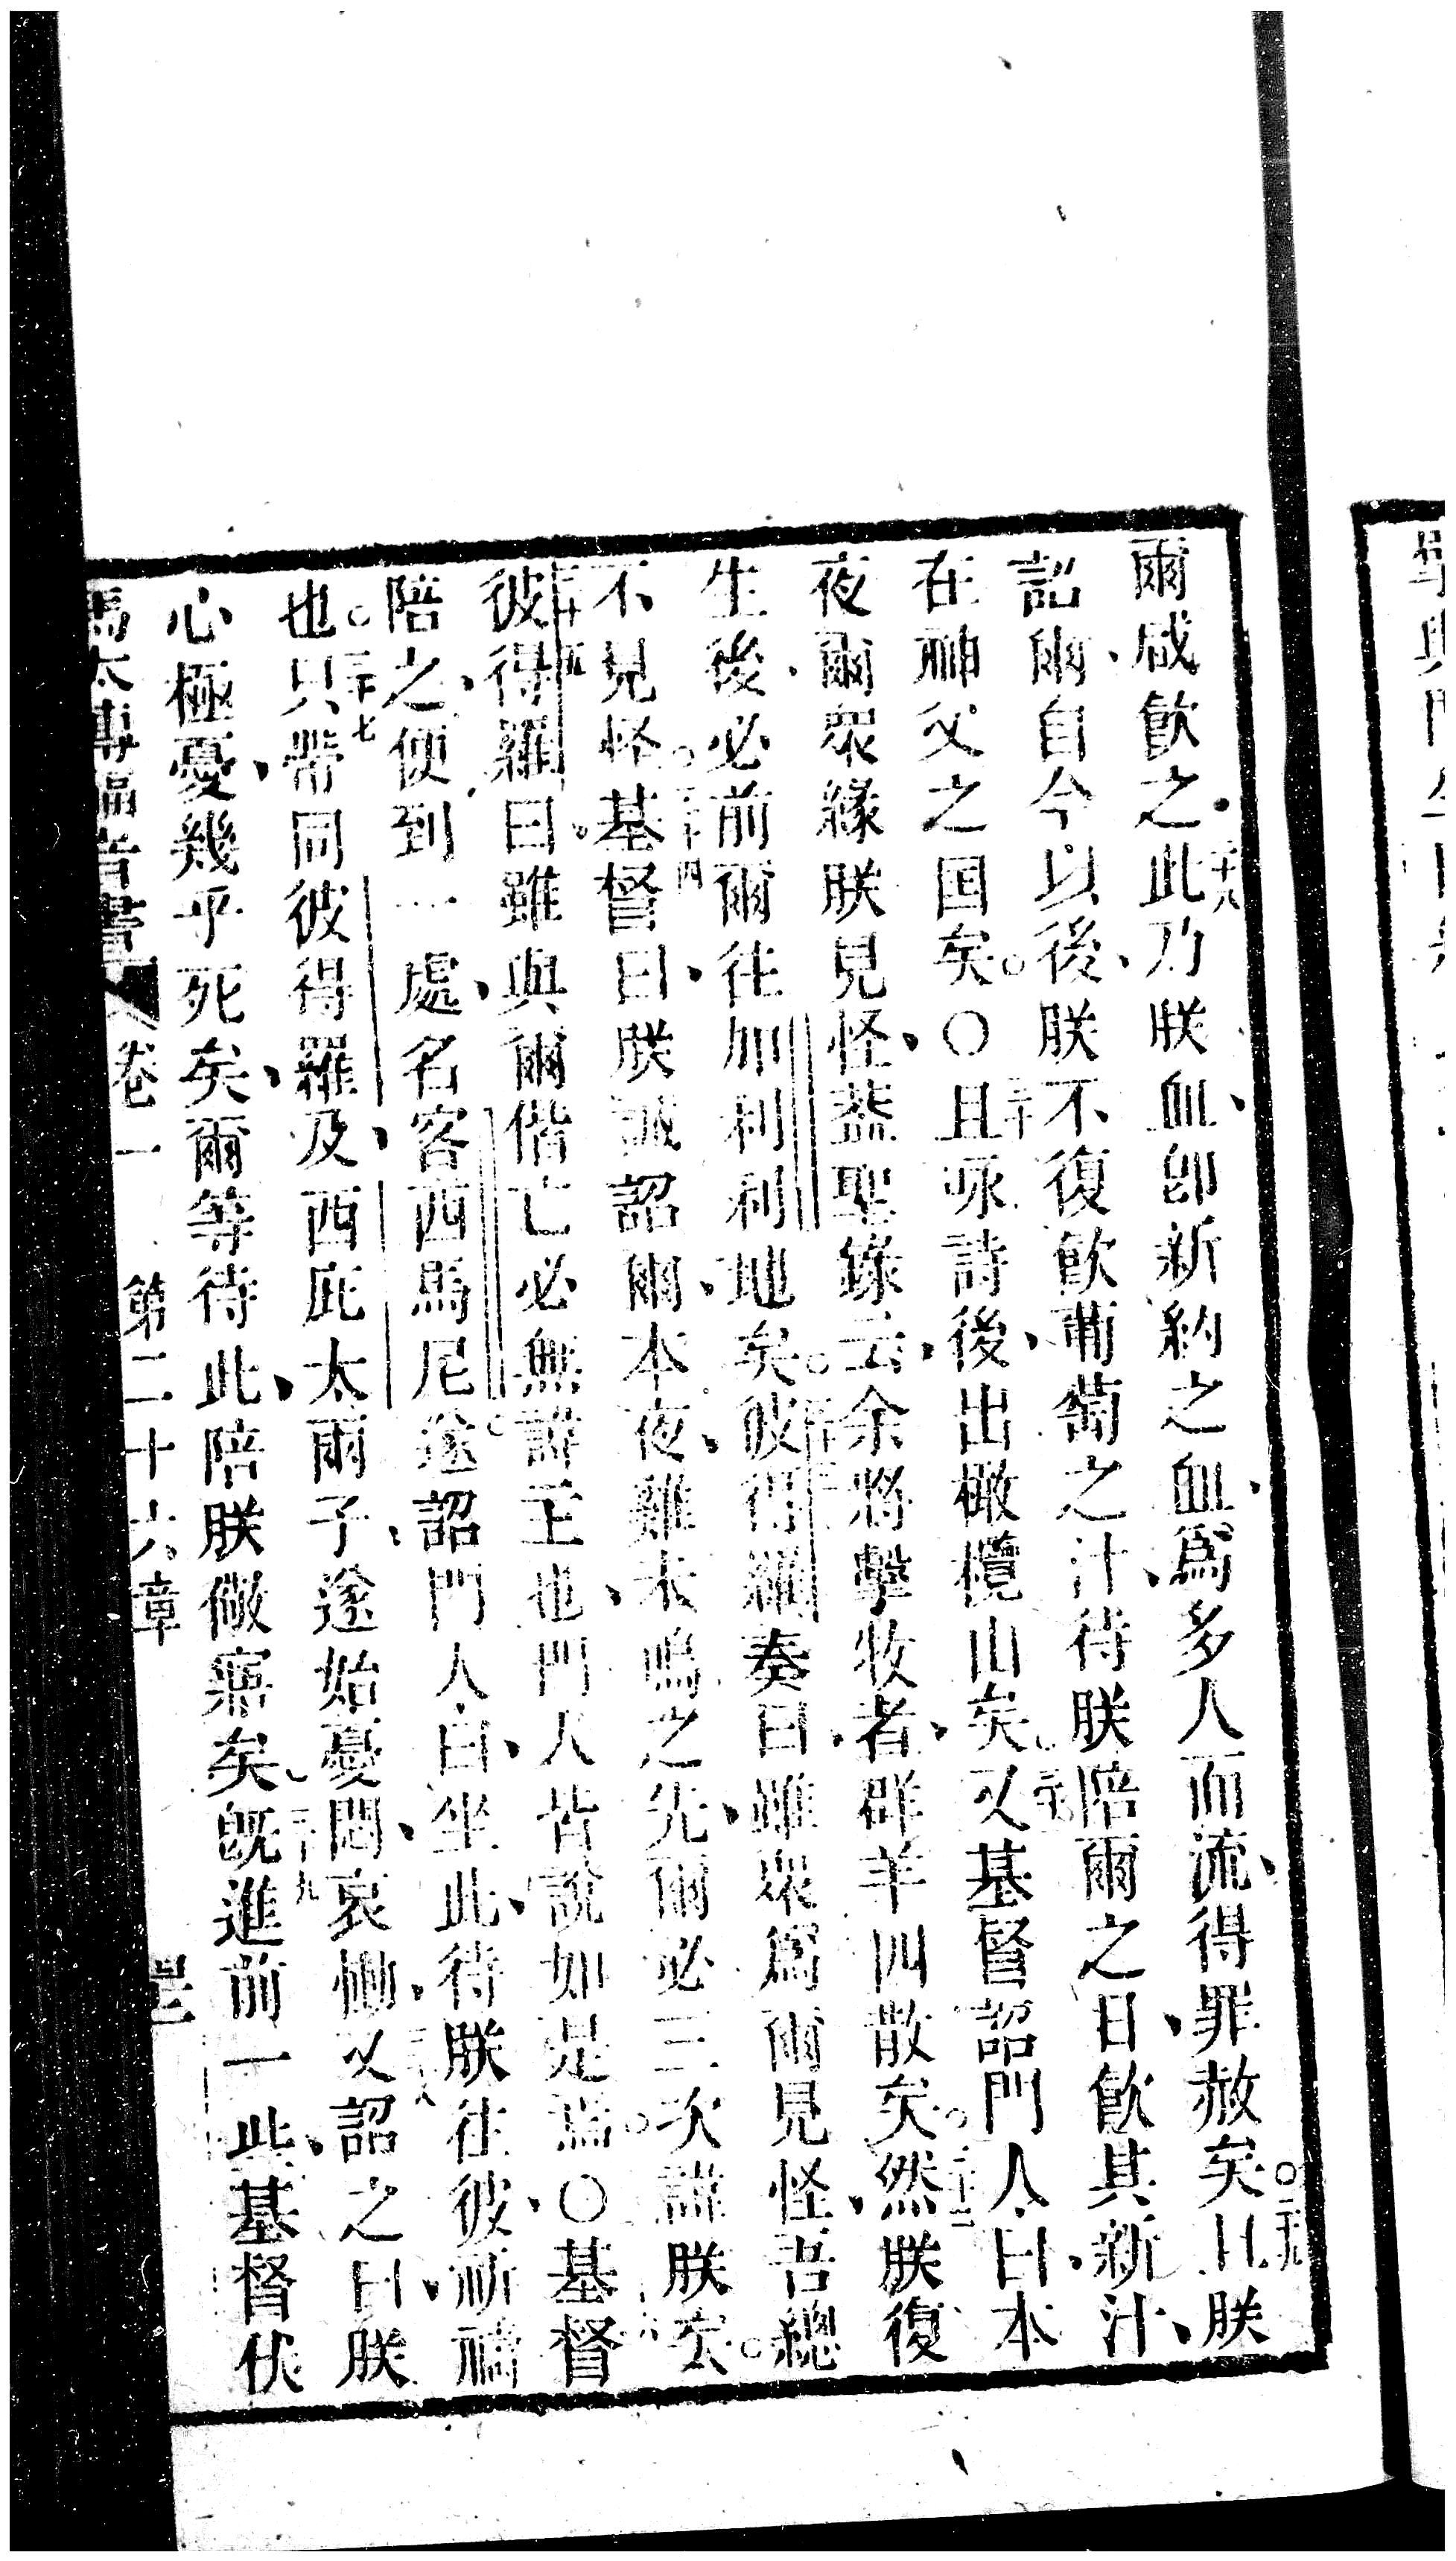 爾咸飲之、二十八此乃朕血、卽新約之血、爲多人而流、得罪赦矣。二十九且朕
詔爾、自今以後、朕不復飲葡萄之汁、待朕陪爾之日、飲其新汁、
在神父之囯矣。○三十且咏詩後、出橄欖山矣。三十一又基督詔門人、曰、本
夜爾眾緣朕見怪、葢聖錄云、余將擊牧者、群羊四散矣。三十二然朕復
生後、必前爾往加利利地矣。三十三彼得羅奏曰、雖眾爲爾見怪、吾總
不見怪。三十四基督曰、朕誠詔爾、本夜、雞未鳴之先、爾必三次諱朕玄。
三十五彼得羅曰、雖與爾偕亡、必無諱主也、門人皆說如是焉。○三十六基督
陪之、便到一處、名客西馬尼。遂詔門人、曰、坐此、待朕往彼、祈禱
也。三十七只帶同彼得羅、及西庇太兩子、遂始憂悶、哀慟、三十八又詔之曰、朕
心極憂、幾乎死矣、爾等待此、陪朕儆寤矣。三十九旣進前一此、基督伏
馬太傳福音書 卷一 第二十六章 四十三